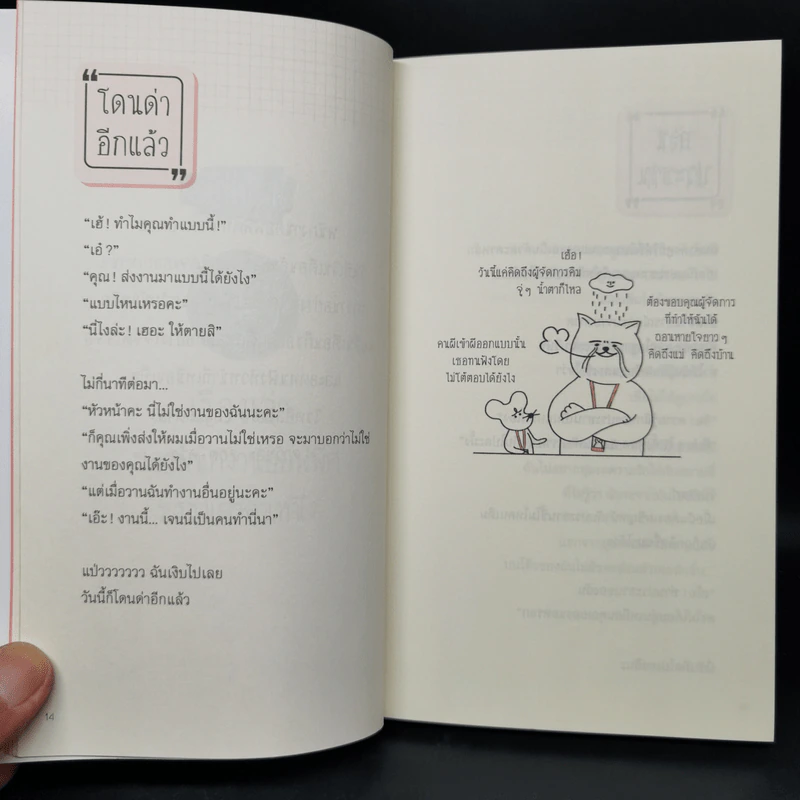 “โดนด่า
อีกแล้ว”
“เฮ้! ทำไมคุณทำแบบนี้!”
“เอ๋?”
“คุณ! ส่งงานมาแบบนี้ได้ยังไง”
“แบบไหนเหรอคะ”
“นี่ไงล่ะ! เฮอะ ให้ตายสิ”
ไม่กี่นาทีต่อมา...
“หัวหน้าคะ นี่ไม่ใช่งานของฉันนะคะ”
“ก็คุณเพิ่งส่งให้ผมเมื่อวานไม่ใช่เหรอ จะมาบอกว่าไม่ใช่
งานของคุณได้ยังไง”
“แต่เมื่อวานฉันทำงานอื่นอยู่นะคะ”
“เอ๊ะ! งานนี้... เจนนี่เป็นคนทำนี่นา”
แป่วววววว ฉันเงิบไปเลย
วันนี้ก็โดนด่าอีกแล้ว
14
เฮ้อ!
วันนี้แค่คิดถึงผู้จัดการคิม
จู่ๆ น้ำตาก็ไหล
ต้องขอบคุณผู้จัดการ
ที่ทำให้ฉันได้
ถอนหายใจยาวๆ
คิดถึงแม่ คิดถึงบ้าน
คนผีเข้าผีออกแบบนั้น
เธอทนฟังโดย
ไม่โต้ตอบได้ยังไง